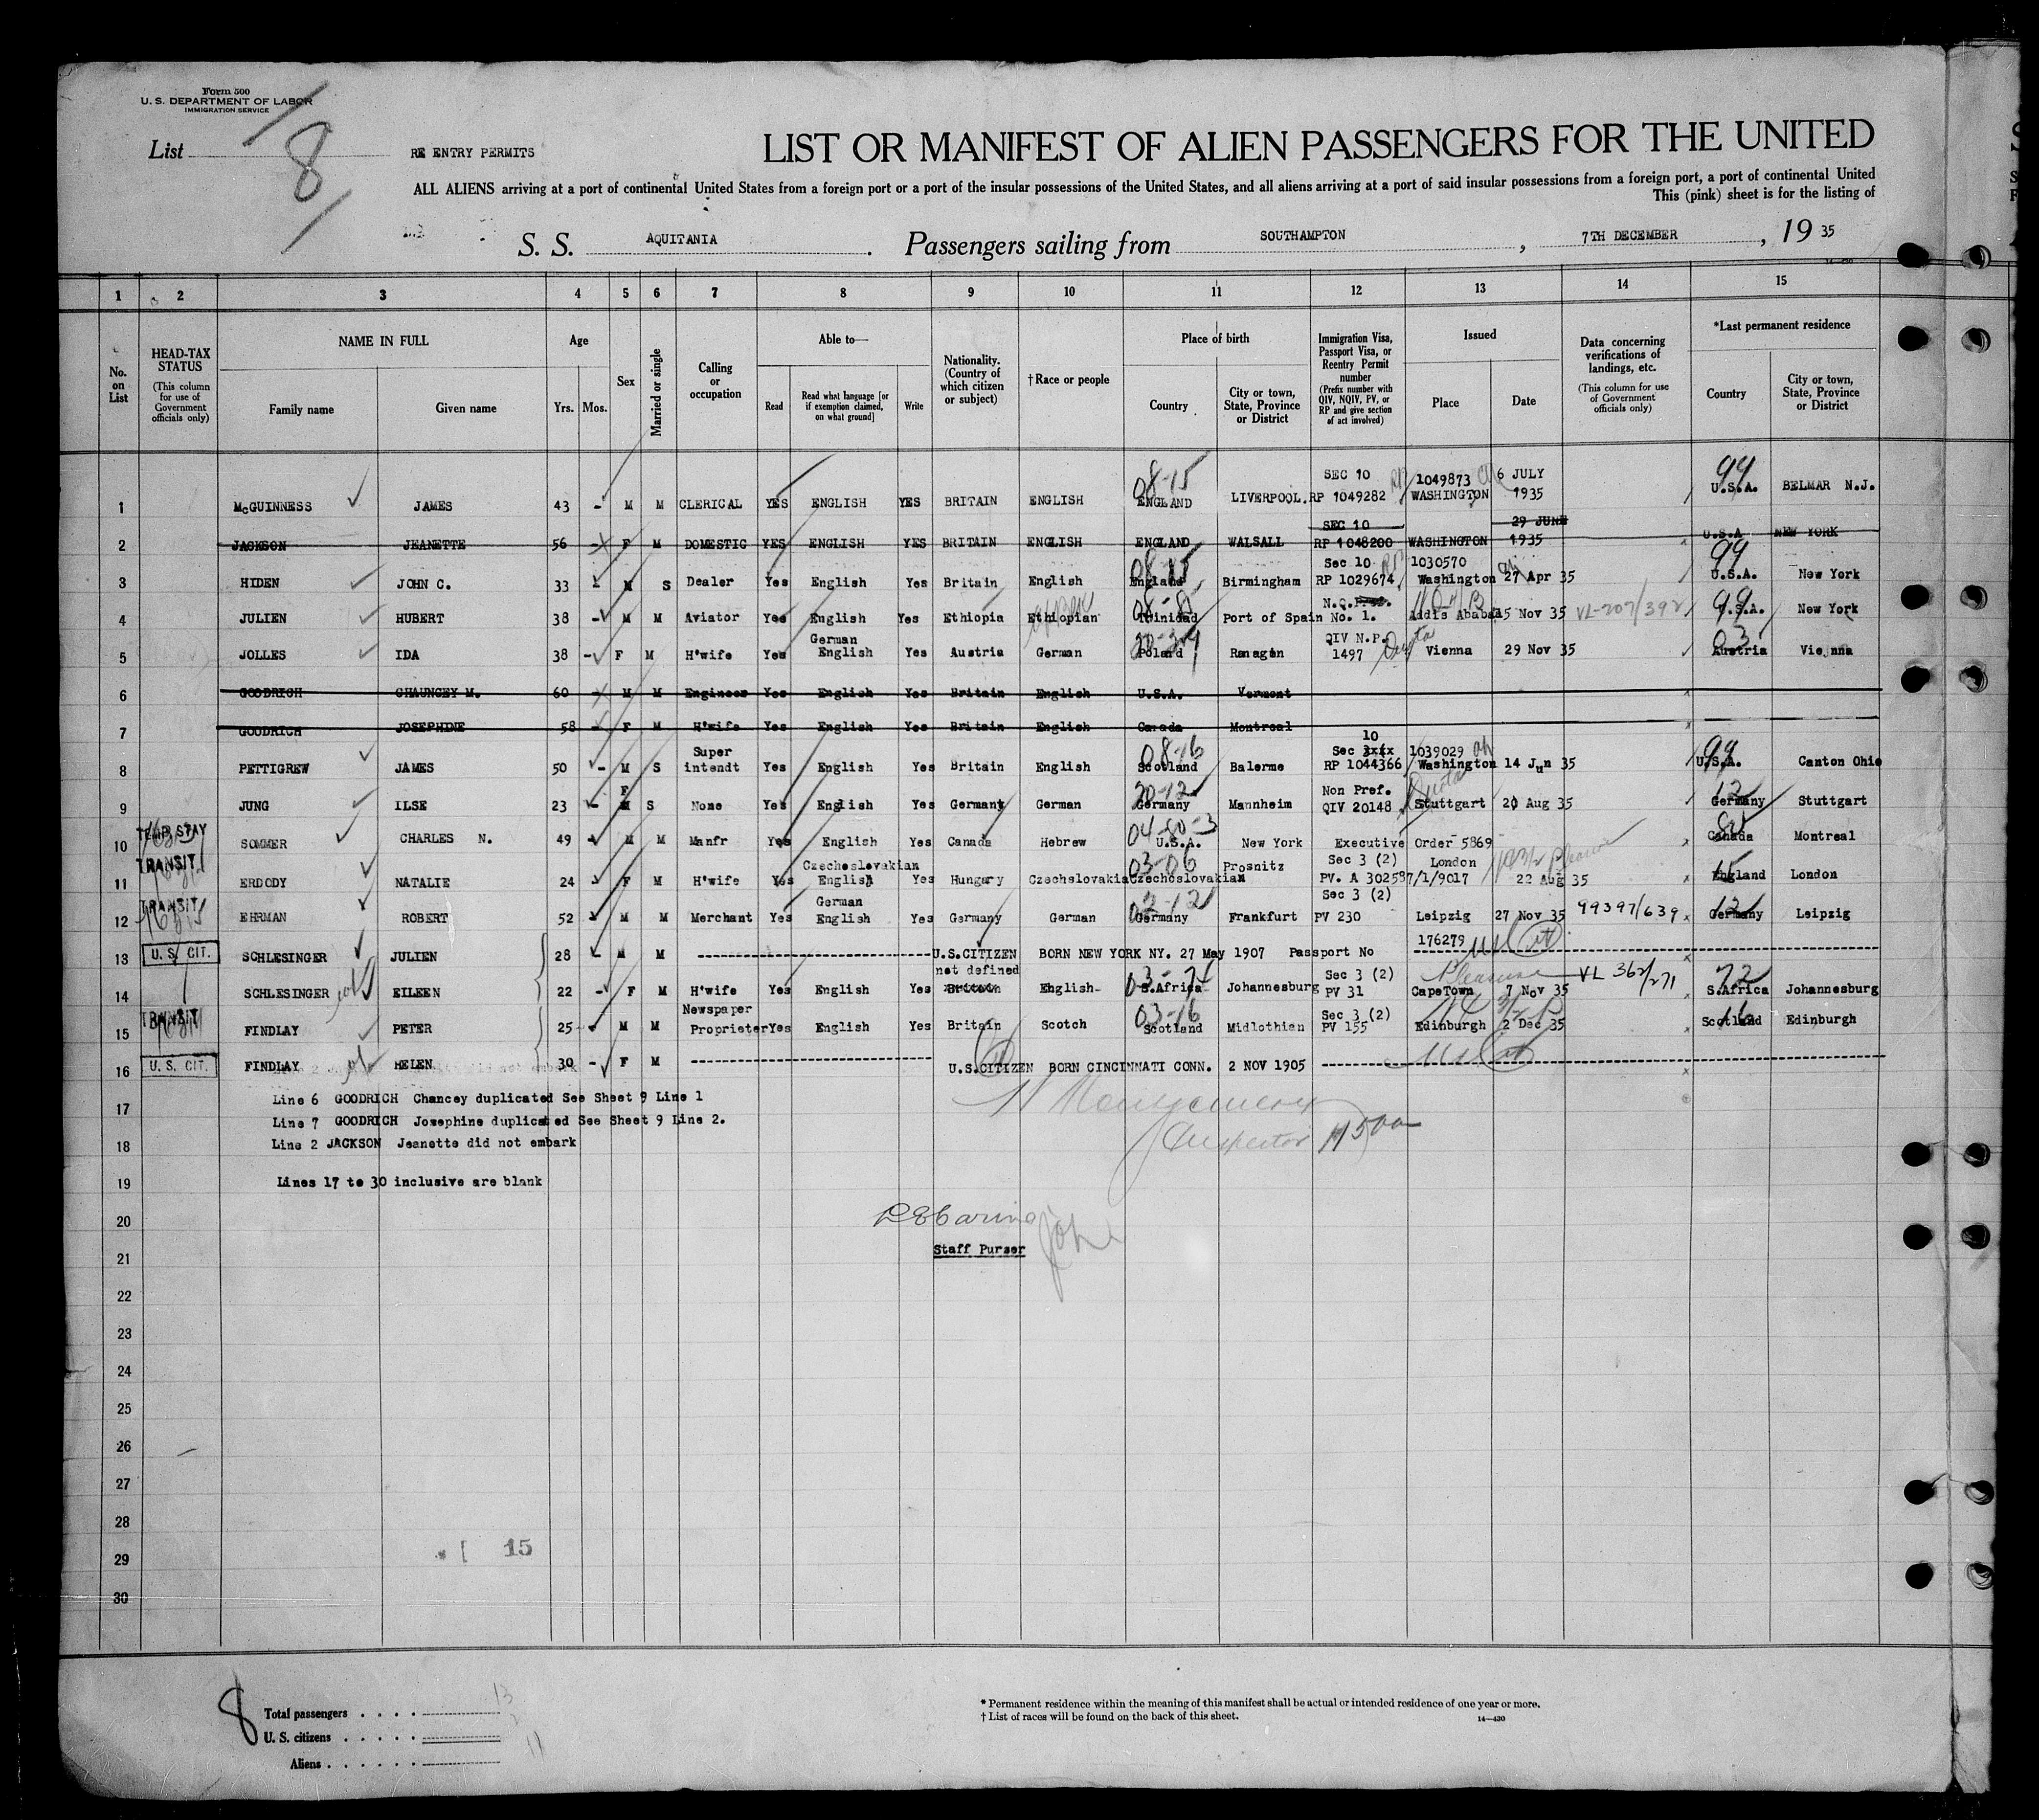 Form 500
U. S. DEPARTMENT OF LABOR
IMMIGRATION SERVICE
List
8
RE ENTRY PERMITS
LIST OR MANIFEST OF ALIEN PASSENGERS FOR THE UNITED
ALL ALIENS arriving at a port of continental United States from a foreign port or a port of the insular possessions of the United States, and all aliens arriving at a port of said insular possessions from a foreign port, a port of continental United
This (pink) sheet is for the listing of
S. S. AQUITANIA. Passengers sailing from SOUTHAMPTON, 7TH DECEMBER, 19 35
1 2 3 4 5 6 7 8 9 10 11 12 13 14 15
No. on List
HEAD-TAX STATUS (This column for use of Government officials only)
NAME IN FULL
Family name Given name
Age
Yrs. Mos.
Sex
Married or single
Calling or occupation
Able to—
Read Read what language [or if exemption claimed, on what ground] Write
Nationality. (Country of which citizen or subject)
†Race or people
Place of birth
Country City or town, State, Province or District
Immigration Visa, Passport Visa, or Reentry Permit number (Prefix number with QIV, NQIV, PV, or RP and give section of act involved)
Issued
Place Date
Data concerning verifications of landings, etc. (This column for use of Government officials only)
*Last permanent residence
Country City or town, State, Province or District
08-15 SEC 10 1049873 6 JULY 99
1 McGUINNESS JAMES 43 - M M CLERICAL YES ENGLISH YES BRITAIN ENGLISH ENGLAND LIVERPOOL. RP 1049282 WASHINGTON 1935 U.S.A. BELMAR N.J.
SEC 10 29 JUNE
2 JACKSON JEANETTE 56 F M DOMESTIC YES ENGLISH YES BRITAIN ENGLISH ENGLAND WALSALL RP 1048200 WASHINGTON 1935 U.S.A NEW YORK
08-15 Sec 10 1030570 99
3 HIDEN JOHN C. 33 M S Dealer Yes English Yes Britain English England Birmingham RP 1029674 Washington 27 Apr 35 U.S.A. New York
4 JULIEN HUBERT 38 - M M Aviator Yes English Yes Ethiopia Ethiopian Trinidad Port of Spain N.Q. No. 1. Addis Ababa 15 Nov 35 VL-207/392 99 U.S.A. New York
German QIV N.P. Quota 03
5 JOLLES IDA 38 - F M H'wife Yes English Yes Austria German Poland Ranagen 1497 Vienna 29 Nov 35 Austria Vienna
6 GOODRICH CHAUNCEY M. 60 M M Engineer Yes English Yes Britain English U.S.A. Vermont
7 GOODRICH JOSEPHINE 58 - F M H'wife Yes English Yes Britain English Canada Montreal
Super 08-16 10 Sec 1039029 99
8 PETTIGREW JAMES 50 - M S intendt Yes English Yes Britain English Scotland Balerme RP 1044366 Washington 14 Jun 35 U.S.A. Canton Ohio
F 20-12 Non Pref. Quota 12
9 JUNG ILSE 23 - M S None Yes English Yes Germany German Germany Mannheim QIV 20148 Stuttgart 20 Aug 35 Germany Stuttgart
TEMP STAY 04-80-3
10 SOMMER CHARLES N. 49 M M Manfr Yes English Yes Canada Hebrew U.S.A. New York Executive Order 5869 Canada Montreal
TRANSIT Czechoslovakian 03-06 Prosnitz Sec 3 (2) London 15
11 ERDODY NATALIE 24 F M H'wife Yes English Yes Hungary Czechslovakia Czechoslovakian PV. A 302587/1/9017 22 Aug 35 England London
TRANSIT German Sec 3 (2) 12
12 EHRMAN ROBERT 52 M M Merchant Yes English Yes Germany German Germany Frankfurt PV 230 Leipzig 27 Nov 35 99397/639 Germany Leipzig
176279
13 U.S. CIT. SCHLESINGER JULIEN 28 M M U.S.CITIZEN BORN NEW YORK NY. 27 May 1907 Passport No
not defined Sec 3 (2) Pleasure VL 362/271 72
14 SCHLESINGER EILEEN 22 - F M H'wife Yes English Yes Britain English S.Africa Johannesburg PV 31 CapeTown 7 Nov 35 S.Africa Johannesburg
TRANSIT Newspaper 03-16 Sec 3 (2) 16
15 FINDLAY PETER 25 M M Proprieter Yes English Yes Britain Scotch Scotland Midlothian PV 155 Edinburgh 2 Dec 35 Scotland Edinburgh
16 U.S. CIT. FINDLAY HELEN 30 - F M U.S.CITIZEN BORN CINCINNATI CONN. 2 NOV 1905
17 Line 6 GOODRICH Chancey duplicated See Sheet 9 Line 1
Line 7 GOODRICH Josephine duplicated See Sheet 9 Line 2.
18 Line 2 JACKSON Jeanette did not embark
Montgomery
Inspector
19 Lines 17 to 30 inclusive are blank
20
Staff Purser
21
22
23
24
25
26
27
28
29
15
30
8
Total passengers . . . . 13
U. S. citizens . . . . .
Aliens . . . . . . 11
* Permanent residence within the meaning of this manifest shall be actual or intended residence of one year or more.
† List of races will be found on the back of this sheet.
14—430